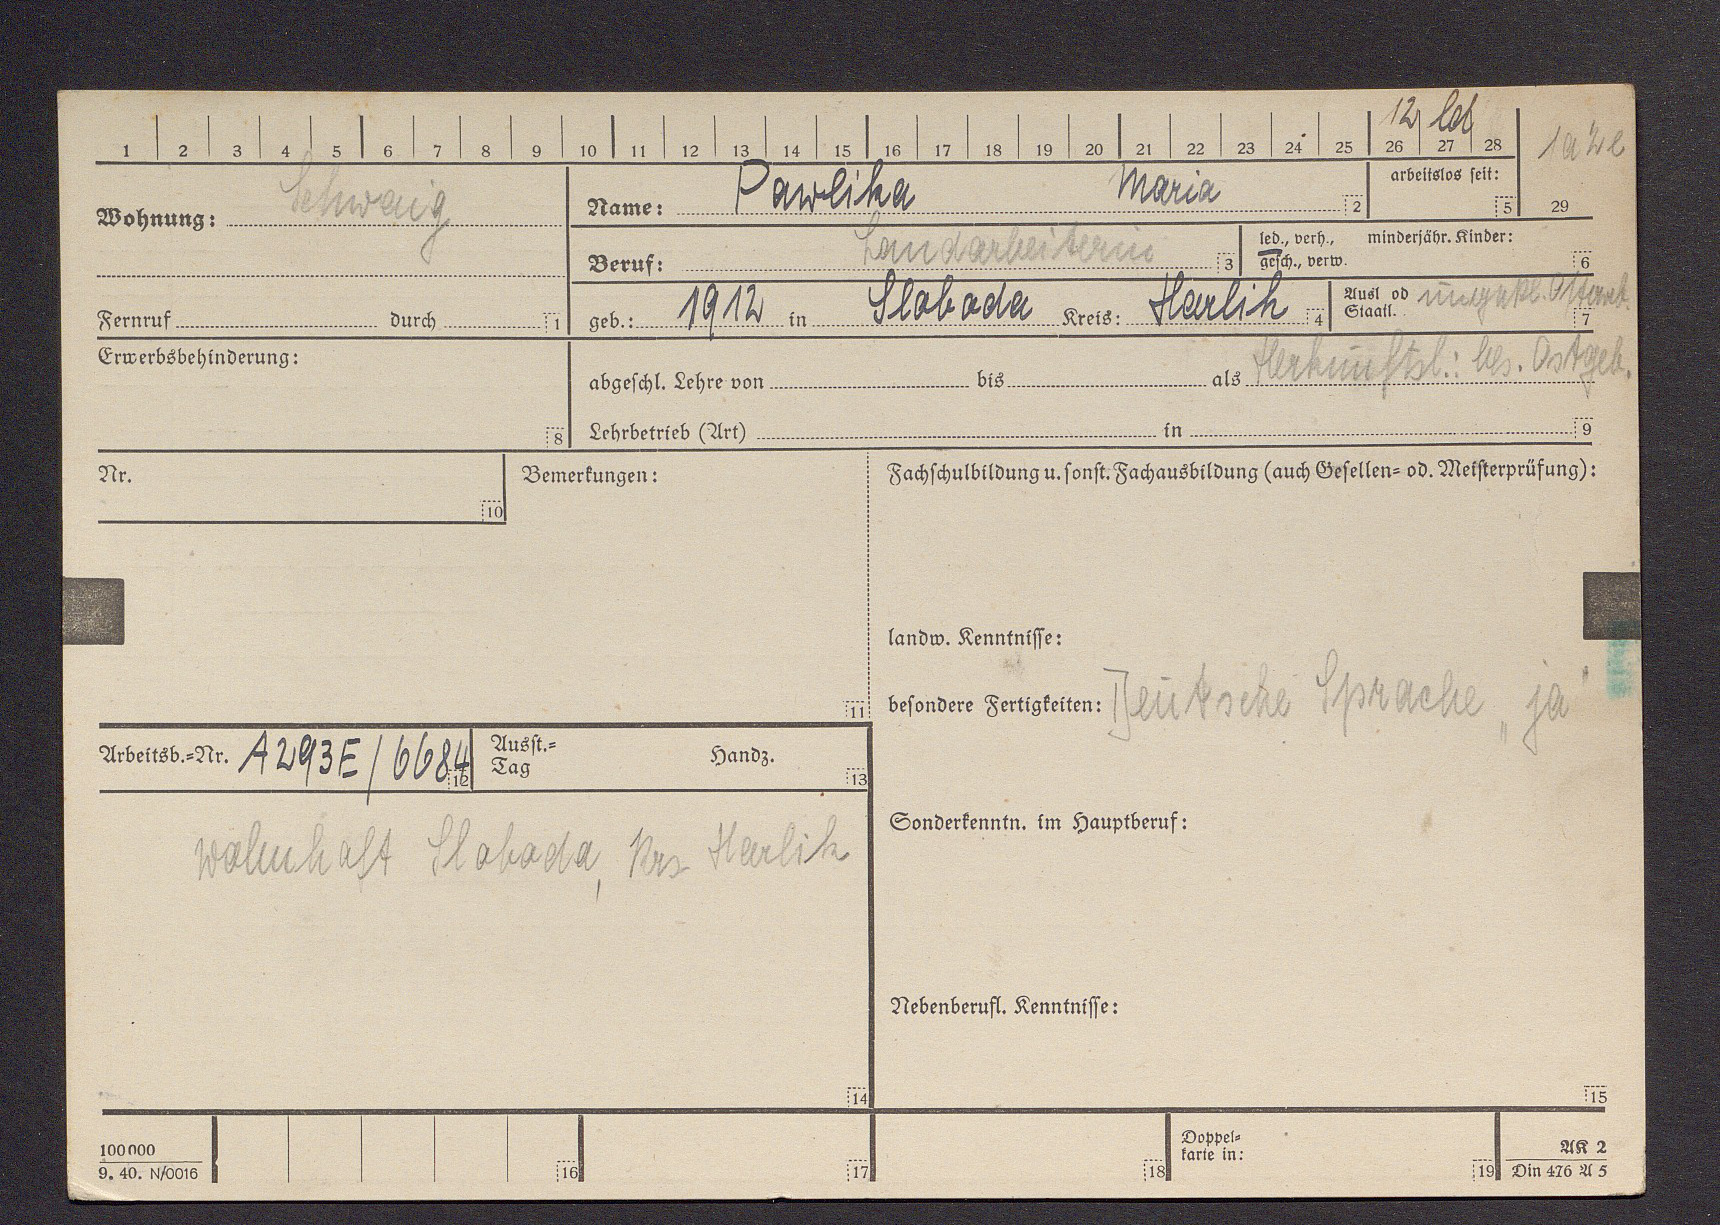 12 led
1 2 3 4 5 6 7 8 9 10 11 12 13 14 15 16 17 18 19 20 21 22 23 24 25 26 27 28
1a
29
Wohnung: Schwaig
Name: Pawlika Maria 2
arbeitslos seit: 5
Beruf: Landarbeiterin 3
led., verh., minderjähr. Kinder:
gesch., verw. 6
Fernruf durch 1
geb.: 1912 in Sloboda Kreis: Harlik 4
Ausl od
Staatl. ungekl. 7
Herkunftsl.: bes. Ostgeb.
Erwerbsbehinderung: 8
abgeschl. Lehre von bis als
Lehrbetrieb (Art) in 9
Nr. 10
Bemerkungen: 11
Fachschulbildung u. sonst. Fachausbildung (auch Gesellen- od. Meisterprüfung):
landw. Kenntnisse:
besondere Fertigkeiten: Deutsche Sprache „ja"
Arbeitsb.-Nr. A293E/6684 12
Ausst.-
Tag Handz. 13
wohnhaft Sloboda, Krs Harlik
14
Sonderkenntn. im Hauptberuf:
Nebenberufl. Kenntnisse:
15
100000
9. 40. N/0016
16 17 18
Doppel-
karte in: 19
AK 2
Din 476 A 5